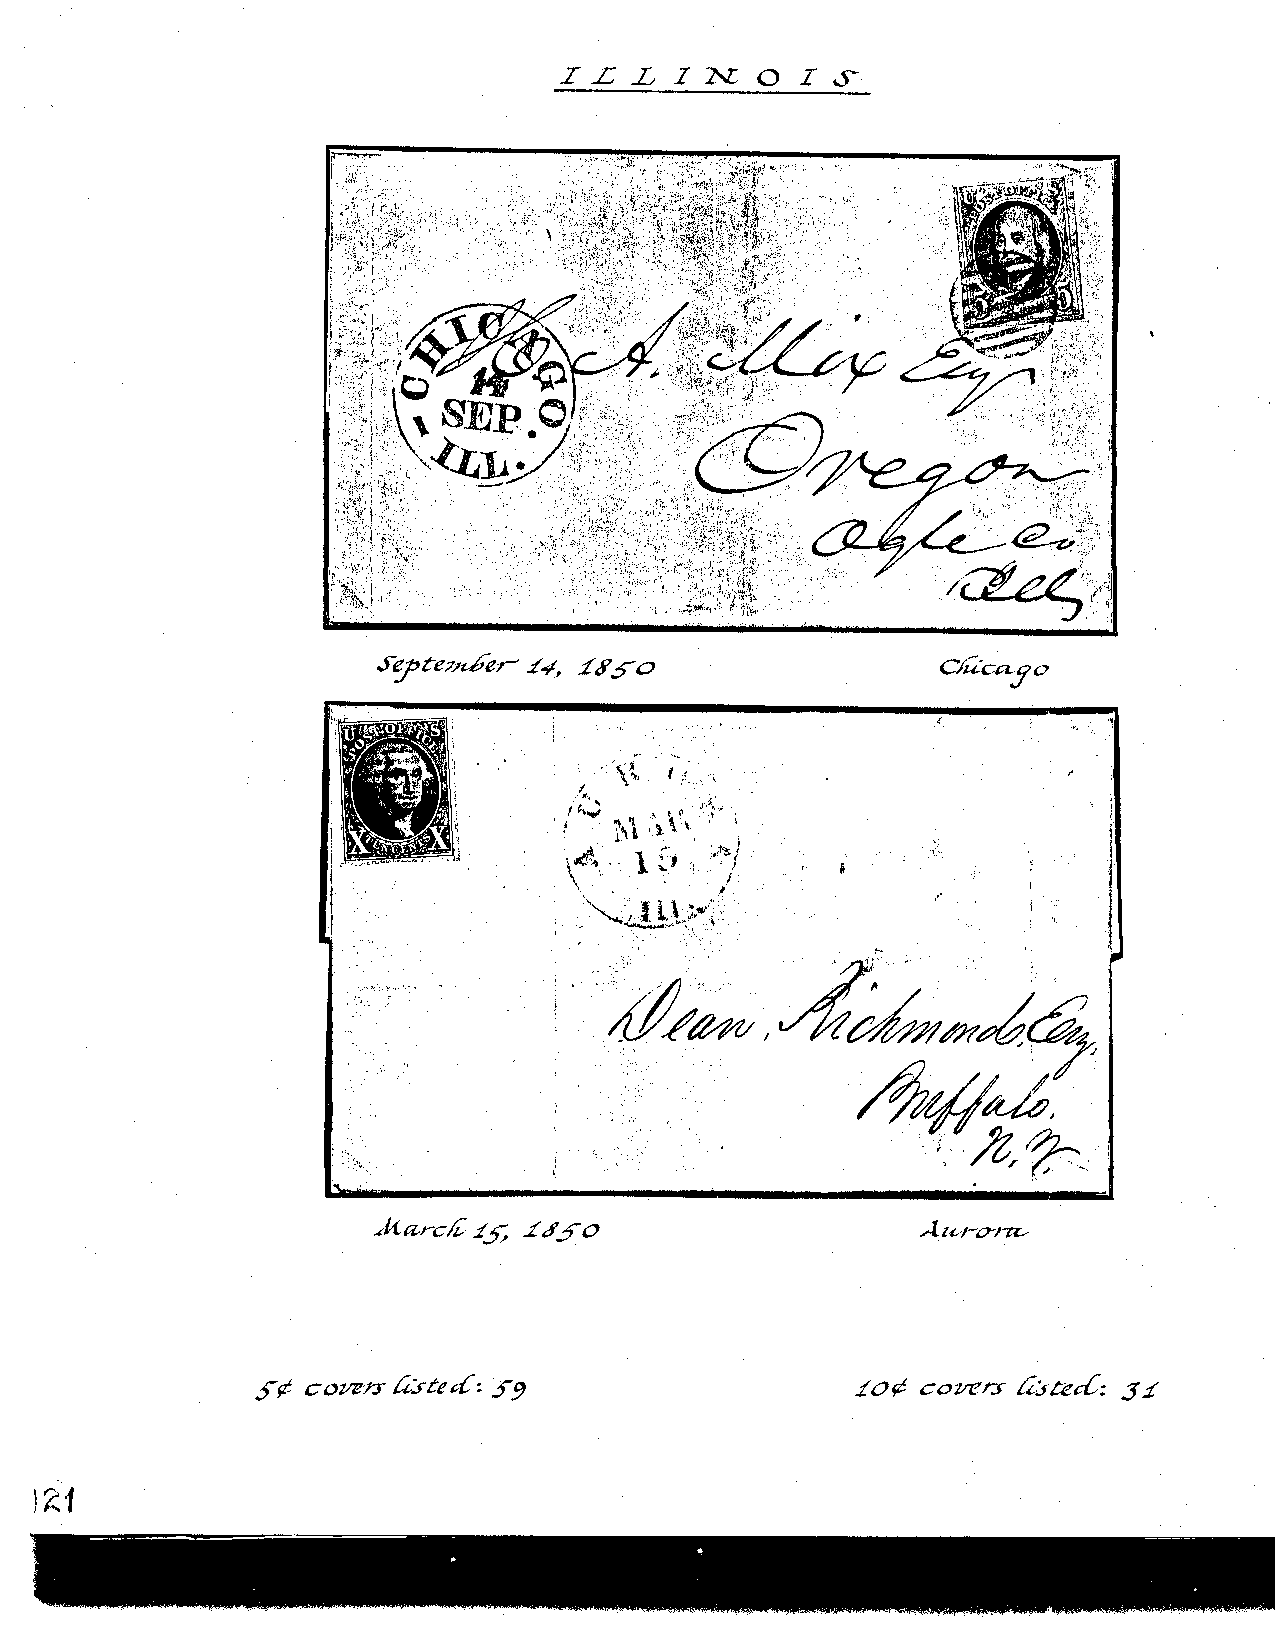 ILLINOIS
U S
5 5
CHICAGO
14
SEP.
ILL.
A. Mix Esq
Oregon
Ogle Co
Ills
September 14, 1850 Chicago
U S
POST OFFICE
X X
AURORA
MAR
15
ILL
Dean Richmond, Esq.
Buffalo.
N.Y.
March 15, 1850 Aurora
5¢ covers listed: 59 10¢ covers listed: 31
121